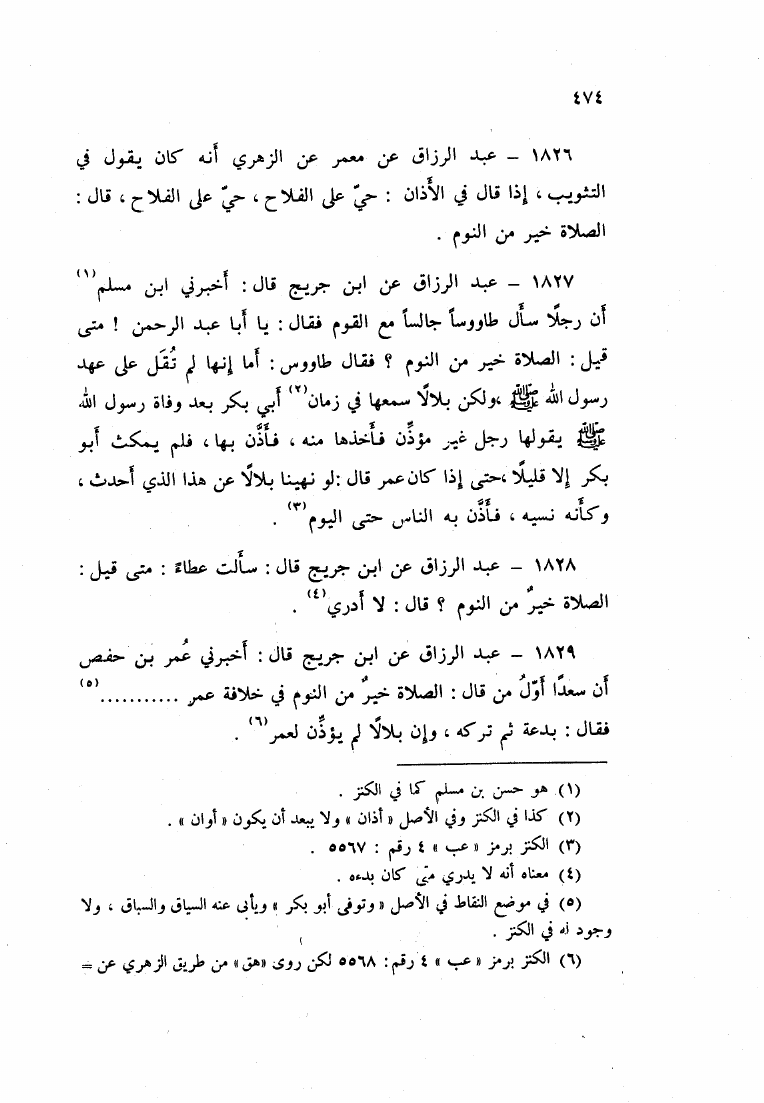 ٤٧٤
١٨٢٦ – عبد الرزاق عن معمر عن الزهري أنه كان يقول في
التثويب ، إذا قال في الأَذان : حيّ على الفلاح ، حيّ على الفلاح ، قال :
الصلاة خير من النوم .
١٨٢٧ – عبد الرزاق عن ابن جريج قال : أخبرني ابن مسلم(١)
أن رجلًا سأَل طاووساً جالساً مع القوم فقال : يا أبا عبد الرحمن ! متى
قيل : الصلاة خير من النوم ؟ فقال طاووس : أما إنها لم تُقَل على عهد
رسول الله ﷺ ،ولكن بلالًا سمعها في زمان(٢) أبي بكر بعد وفاة رسول الله
ﷺ يقولها رجل غير مؤذِّن فأَخذها منه ، فأَذَّن بها ، فلم يمكث أبو
بكر إلا قليلًا ،حتى إذا كان عمر قال :لو نهينا بلالًا عن هذا الذي أحدث ،
وكأَنه نسيه ، فأَذَّن به الناس حتى اليوم(٣) .
١٨٢٨ – عبد الرزاق عن ابن جريج قال : سأَلت عطاءً : متى قيل :
الصلاة خيرٌ من النوم ؟ قال : لا أدري(٤) .
١٨٢٩ – عبد الرزاق عن ابن جريج قال : أخبرني عُمر بن حفص
أن سعدًا أوّلُ من قال : الصلاة خيرٌ من النوم في خلافة عمر ...........(٥)
فقال : بدعة ثم تركه ، وإن بلالًا لم يؤذِّن لعمر(٦) .
(١) هو حسن بن مسلم كما في الكنز .
(٢) كذا في الكنز وفي الأصل « أذان » ولا يبعد أن يكون « أوان » .
(٣) الكنز برمز « عب » ٤ رقم : ٥٥٦٧ .
(٤) معناه أنه لا يدري متى كان بدءه .
(٥) في موضع النقاط في الأصل « وتوفى أبو بكر » ويأبى عنه السياق والسباق ، ولا
وجود له في الكنز .
(٦) الكنز برمز « عب » ٤ رقم : ٥٥٦٨ لكن روى «هق» من طريق الزهري عن =